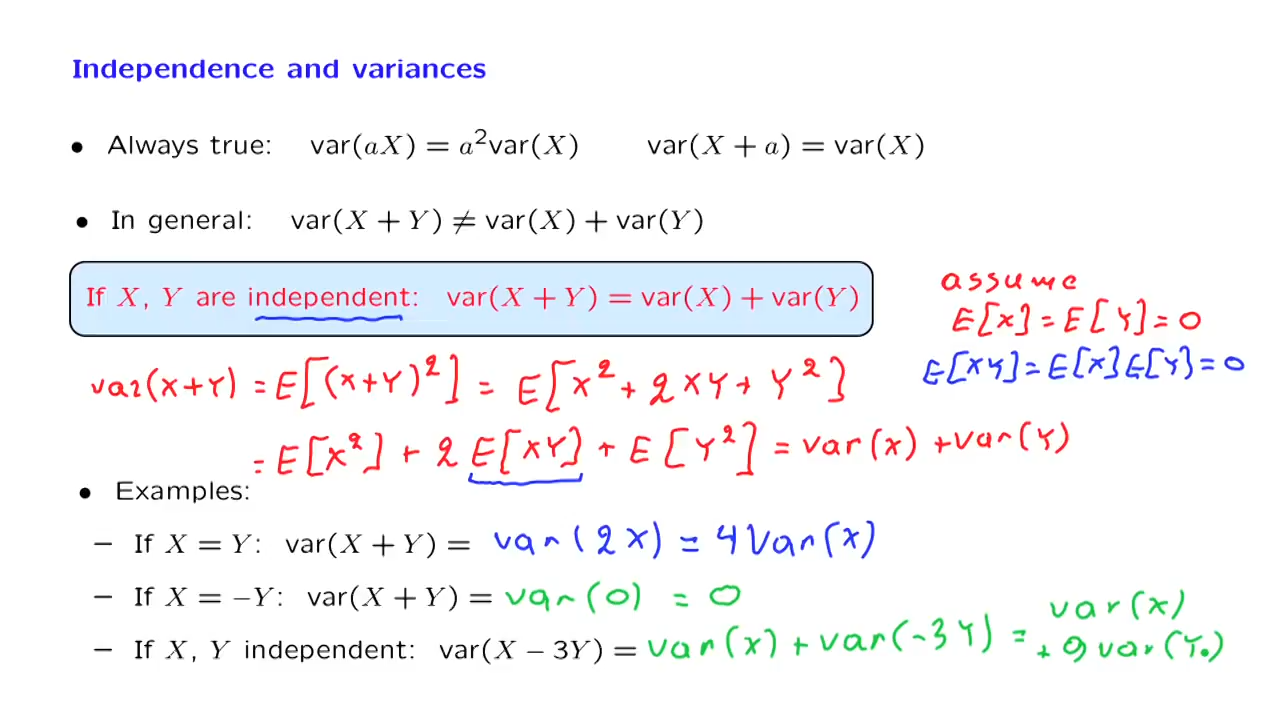 Independence and variances
• Always true: var(aX) = a²var(X) var(X + a) = var(X)
• In general: var(X + Y) ≠ var(X) + var(Y)
If X, Y are independent: var(X + Y) = var(X) + var(Y)
assume
E[X] = E[Y] = 0
E[XY] = E[X]E[Y] = 0
var(X+Y) = E[(X+Y)²] = E[X² + 2XY + Y²]
= E[X²] + 2 E[XY] + E[Y²] = var(X) + var(Y)
• Examples:
– If X = Y: var(X + Y) = var(2X) = 4Var(X)
– If X = −Y: var(X + Y) = var(0) = 0
– If X, Y independent: var(X − 3Y) = var(X) + var(-3Y) = var(X)
+ 9 var(Y).